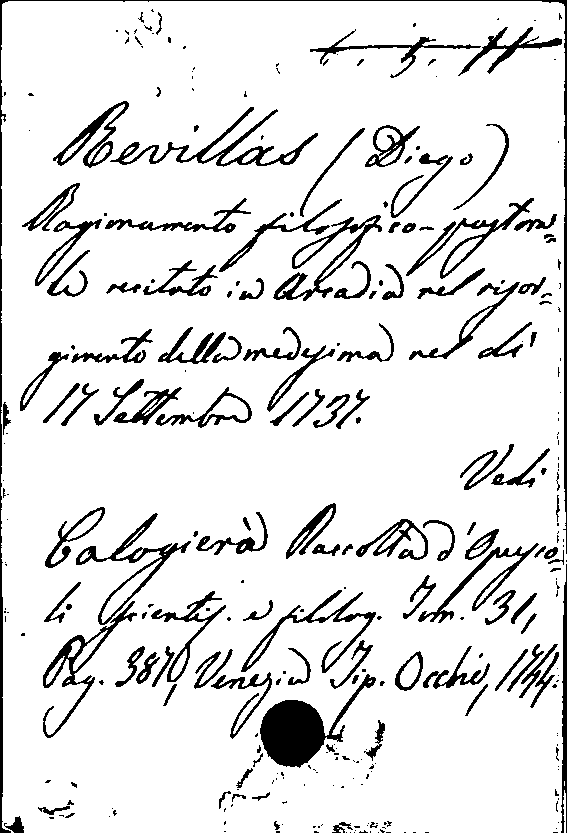 6. 5. 11
Revillas (Diego)
Ragionamento filosofico-pastora=
le recitato in Arcadia nel risor=
gimento della medesima nel dì
17 Settembre 1737.
Vedi
Calogierà Raccolta d'Opusco=
li scientif. e filolog. Tom. 31,
Pag. 387, Venezia Tip. Occhi, 1744.